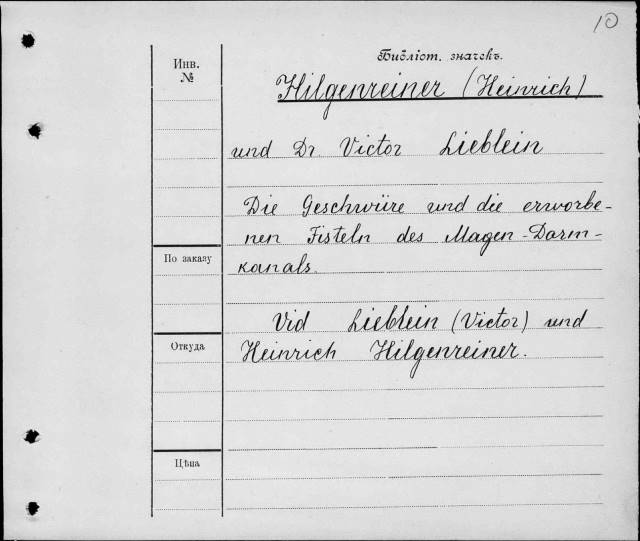 10
Библіот. значекъ.
Инв.
№
Hilgenreiner (Heinrich)
und Dr Victor Lieblein
Die Geschwüre und die erworbe-
nen Fisteln des Magen-Darm-
kanals.
По заказу
Vid Lieblein (Victor) und
Откуда
Heinrich Hilgenreiner.
Цѣна